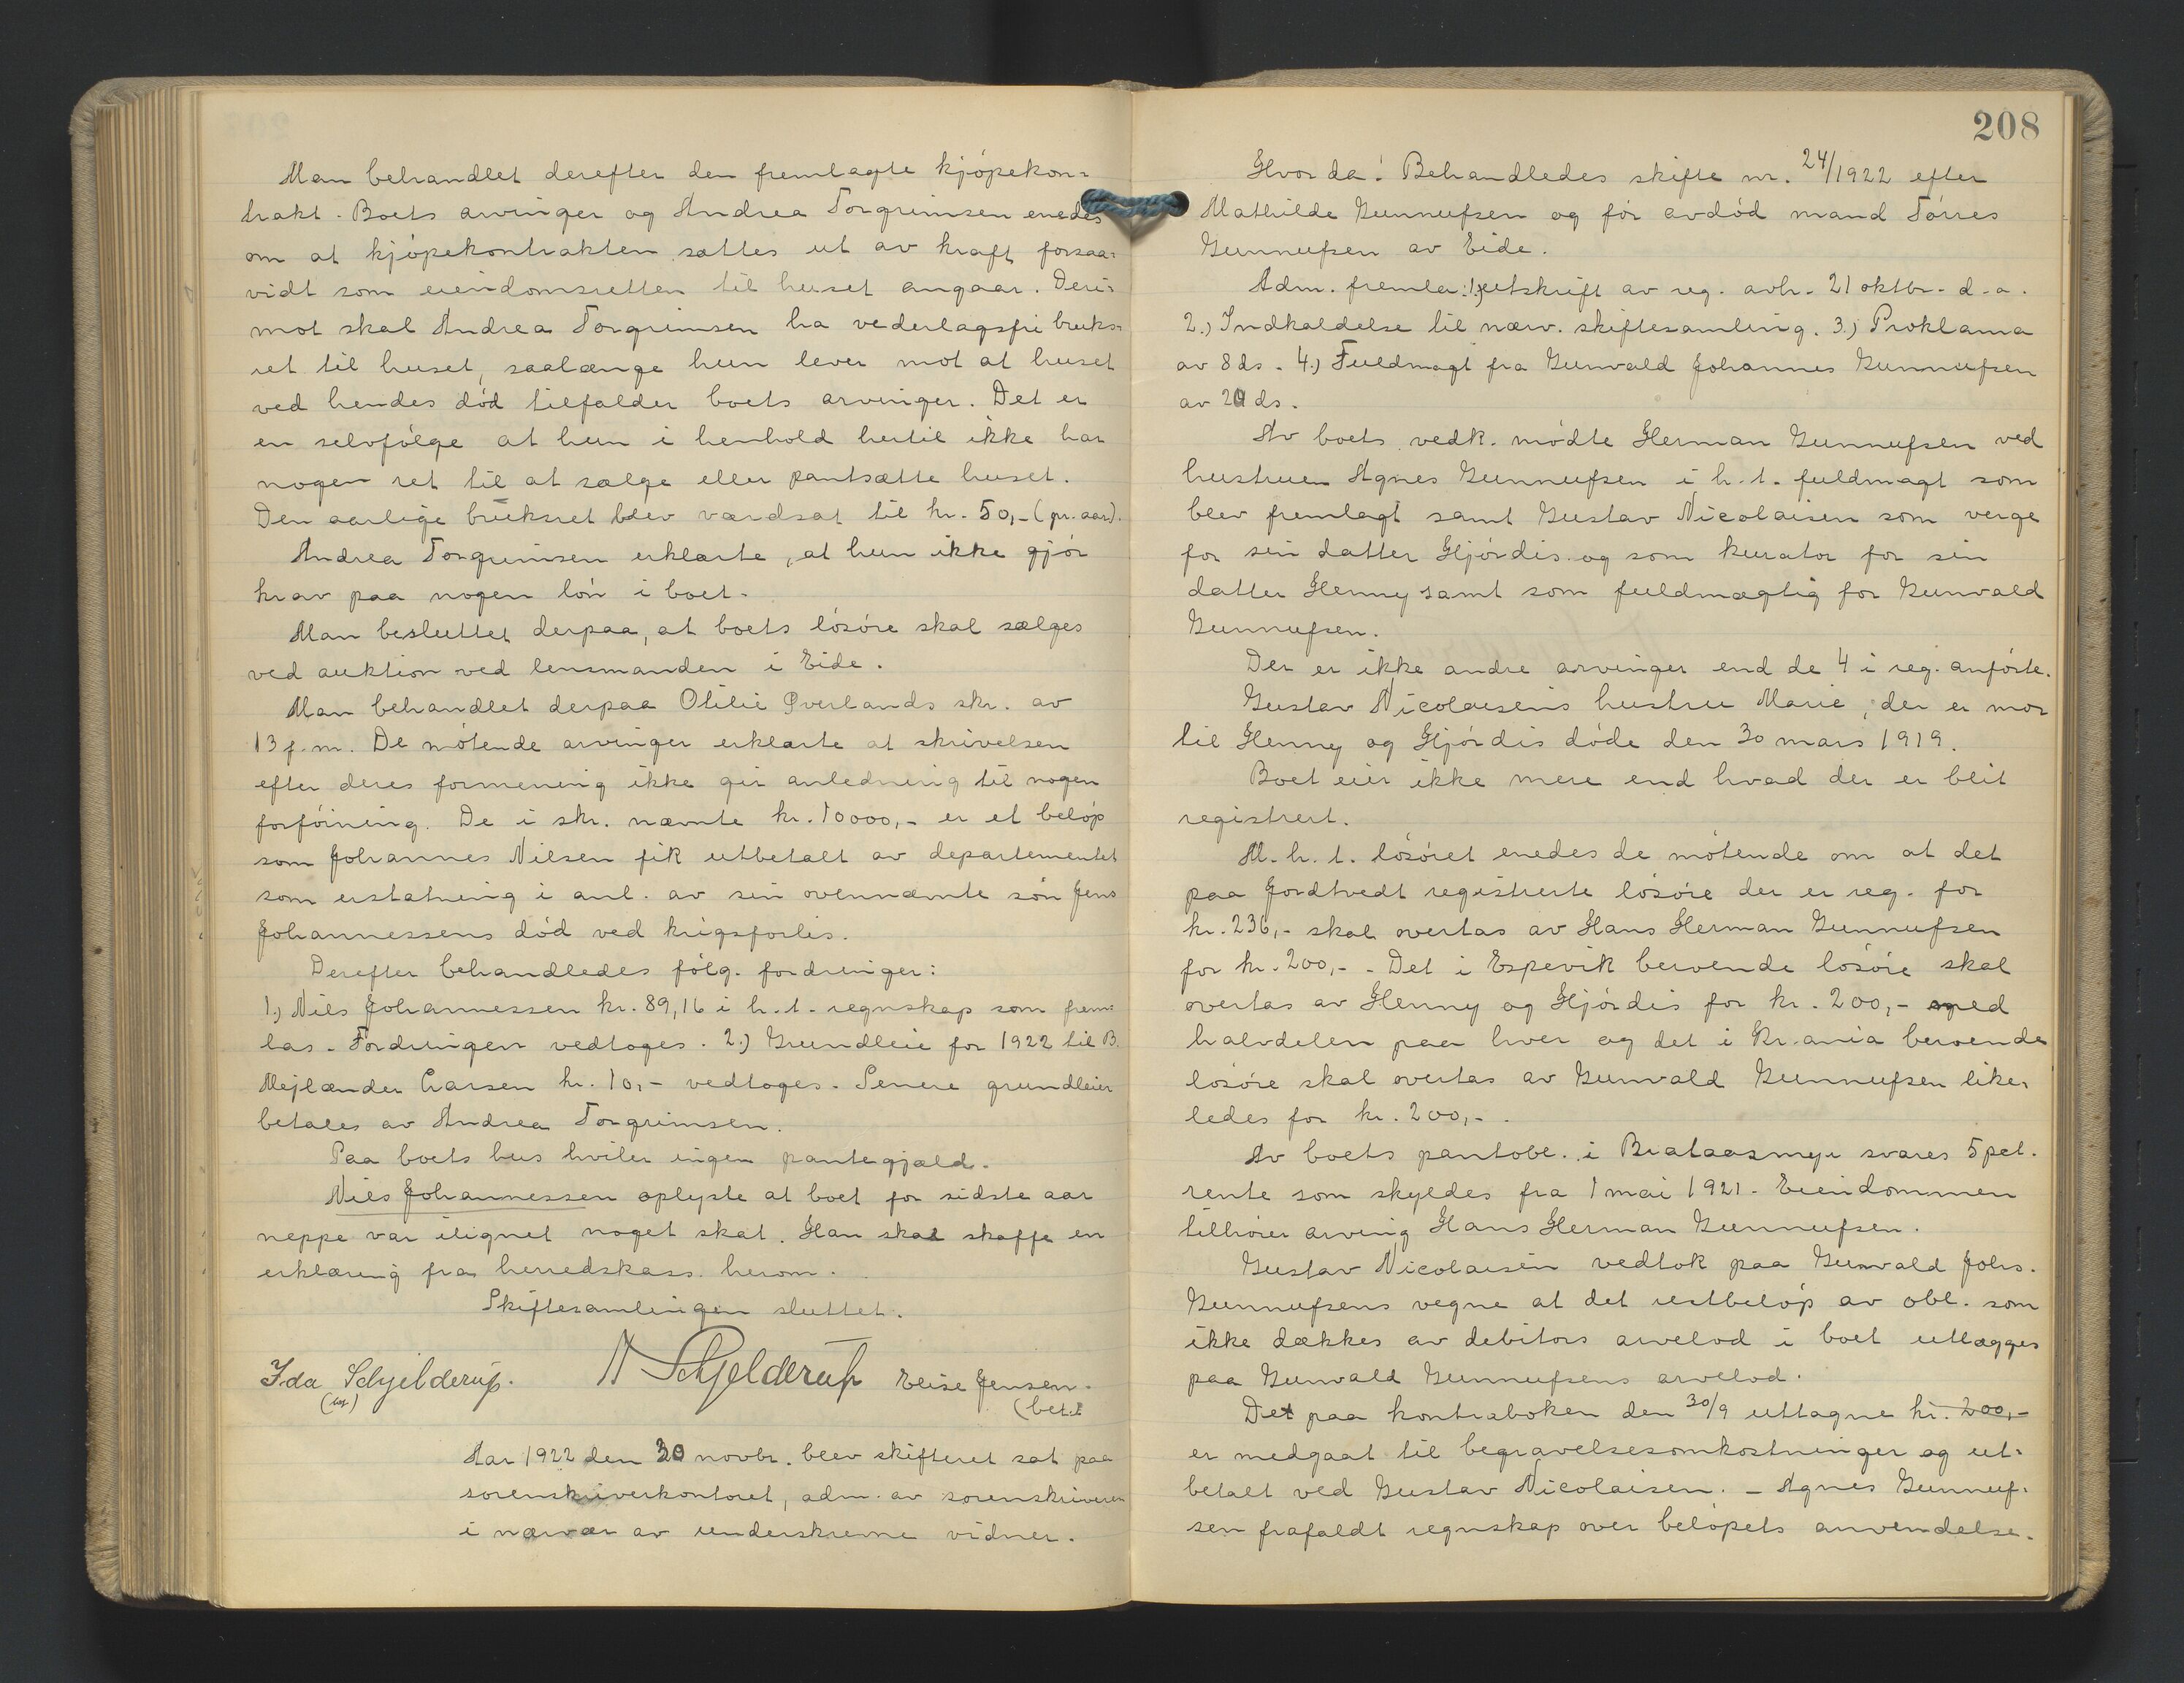 Man behandlet derefter den fremlagte kjøpekon=
trakt. Boets arvinger og Andrea Torgrimsen enedes
om at kjøpekontrakten sættes ut av kraft forsaa=
vidt som eiendomsretten til huset angaar. Deri=
mot skal Andrea Torgrimsen ha vederlagsfri bruks=
ret til huset, saalænge hun lever mot at huset
ved hendes død tilfalder boets arvinger. Det er
en selvfølge at hun i henhold hertil ikke har
nogen ret til at sælge eller pantsætte huset.
Den aarlige bruksret blev værdsat til kr. 50,- (pr. aar).
Andrea Torgrimsen erklærte, at hun ikke gjør
krav paa nogen løn i boet.
Man besluttet derpaa, at boets løsøre skal sælges
ved auktion ved lensmanden i Eide.
Man behandlet derpaa Otilie Øverlands skr. av
13 f.m. De møtende arvinger erklærte at skrivelsen
efter deres formening ikke gir anledning til nogen
forføining. De i skr. nævnte kr. 10000,- er et beløp
som Johannes Nilsen fik utbetalt av departementet
som erstatning i anl. av sin ovennævnte søn Jens
Johannessens død ved krigsforlis.
Derefter behandledes følg. fordringer:
1.) Nils Johannessen kr. 89,16 i h.t. regnskap som frem=
las. Fordringen vedtoges. 2.) Grundleie for 1922 til B.
Mejlænder Larsen kr. 10,- vedtoges. Senere grundleier
betales av Andrea Torgrimsen.
Paa boets hus hviler ingen pantegjæld.
Nils Johannessen oplyste at boet for sidste aar
neppe var ilignet noget skat. Han skal skaffe en
erklæring fra herredskass. herom.
Skiftesamlingen sluttet.
Ida Schjelderup. N Schjelderup Elise Jensen.
(bet.)
Aar 1922 den 30 novbr. blev skifteret sat paa
sorenskriverkontoret, adm. av sorenskriveren
i nærvær av underskrevne vidner.
208
Hvorda: Behandledes skifte nr. 24/1922 efter
Mathilde Gunnufsen og før avdød mand Tørres
Gunnufsen av Eide.
Adm. fremla: 1.) utskrift av reg. avh. 21 oktbr. d.a.
2.) Indkaldelse til nærv. skiftesamling. 3.) Proklama
av 8 ds. 4.) Fuldmagt fra Gunvald Johannes Gunnufsen
av 20 ds.
Av boets vedk. mødte Herman Gunnufsen ved
hustruen Agnes Gunnufsen i h.t. fuldmagt som
blev fremlagt samt Gustav Nicolaisen som verge
for sin datter Hjørdis og som kurator for sin
datter Henny samt som fuldmægtig for Gunvald
Gunnufsen.
Der er ikke andre arvinger end de 4 i reg. anførte.
Gustav Nicolaisens hustru Marie, der er mor
til Henny og Hjørdis døde den 30 mars 1919.
Boet eier ikke mere end hvad der er blit
registrert.
M.h.t. løsøret enedes de møtende om at det
paa Jordtvedt registrerte løsøre der er reg. for
kr. 236,- skal overtas av Hans Herman Gunnufsen
for kr. 200,-. Det i Espevik beroende løsøre skal
overtas av Henny og Hjørdis for kr. 200,- med
halvdelen paa hver og det i Kr.ania beroende
løsøre skal overtas av Gunvald Gunnufsen like=
ledes for kr. 200,-.
Av boets pantobl. i Brataasmyr svares 5 pct.
rente som skyldes fra 1 mai 1921. Eiendommen
tilhører arving Hans Herman Gunnufsen.
Gustav Nicolaisen vedtok paa Gunvald Johs.
Gunnufsens vegne at det restbeløp av obl. som
ikke dækkes av debitors arvelod i boet utlægges
paa Gunvald Gunnufsens arvelod.
Det paa kontraboken den 30/9 uttagne kr. 200,-
er medgaat til begravelsesomkostninger og ut=
betalt ved Gustav Nicolaisen. - Agnes Gunnuf=
sen frafaldt regnskap over beløpets anvendelse.